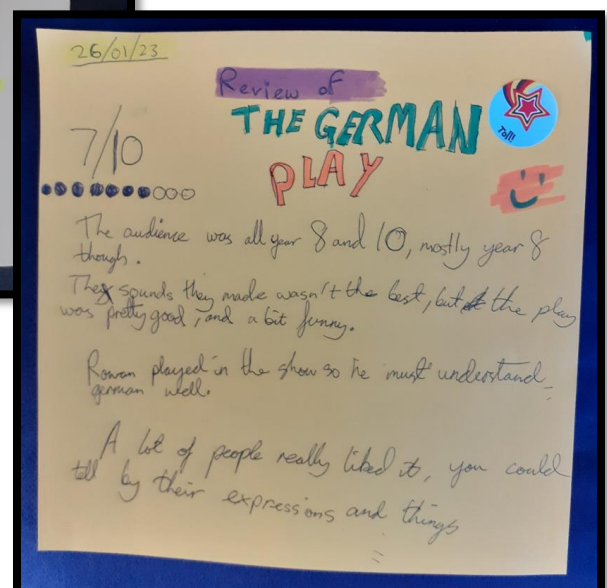 26/01/23
Review of
THE GERMAN
PLAY
Toll!
7/10
The audience was all year 8 and 10, mostly year 8
though.
The sounds they made wasn't the best, but the play
was pretty good, and a bit funny.
Rowan played in the show so he must understand
german well.
A lot of people really liked it, you could
tell by their expressions and things